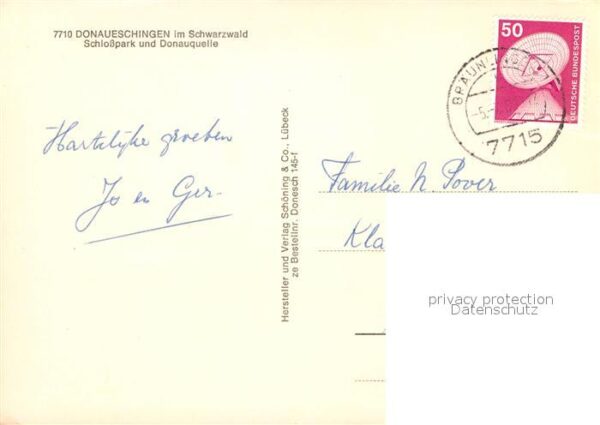 7710 DONAUESCHINGEN im Schwarzwald
Schloßpark und Donauquelle
50
DEUTSCHE BUNDESPOST
7715
Hartelijke groeten
Jo en Ger.
Hersteller und Verlag Schöning & Co., Lübeck
ze Bestellnr. Donesch 145-f
Familie N. Pover
Kla
privacy protection
Datenschutz